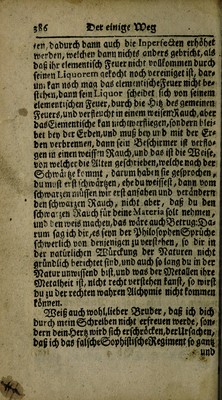 386 Der einige Weg
ren, dadurch dann auch die Inperfecten erhöhet
werden, welchen dann nichts anders gebricht, als
daß ihr elementisch Feuer nicht vollkommen durch
seinen Liquorem gekocht noch vereiniget ist, dar-
um kan noch mag das elementische Feuer nicht be-
stehen, dann sein Liquor scheidet sich von seinem
elementischen Feuer, durch die Hitz des gemeinen
Feuers, und verreucht in einem weissen Rauch, aber
das Elementische kan nicht verfliegen, sondern blei-
bet bey der Erden, und muß bey und mit der Er-
den verbrennen, dann sein Beschirmer ist verflo-
gen in einen weissen Rauch, und das ist die Weise,
von welcher die Alten geschrieben, welche nach der
Schwärtze kommt, darum haben sie gesprochen,
du must erst schwärtzen, ehe du weissest, dann vom
schwartzen müssen wir erst anfahen und verändern
den schwartzen Rauch, nicht aber, daß du den
schwartzen Rauch für deine Materia solt nehmen
und den weis machen, das wäre auch Betrug. Da-
rum sag ich dir, es seyn der Philosophen Sprüche
schwerlich von denjenigen zu verstehen, so dir in
der natürlichen Würckung der Naturen nicht
gründlich berichtet sind, und auch so lang du in der
Natur unwissend bist, und was der Metallen ihre
Metalheit ist, nicht recht verstehen kanst, so wirst
du zu der rechten wahren Alchymie nicht kommen
können.
Weiß auch wohl, lieber Bruder, daß ich dich
durch mein Schreiben nicht erfreuen werde, son-
dern dein Hertz wird sich erschröcken, der Ursachen,
daß ich das falsche Sophistische Regiment so gantz
und